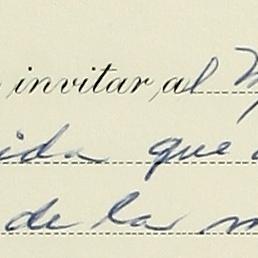 invitar al
ida que
de la